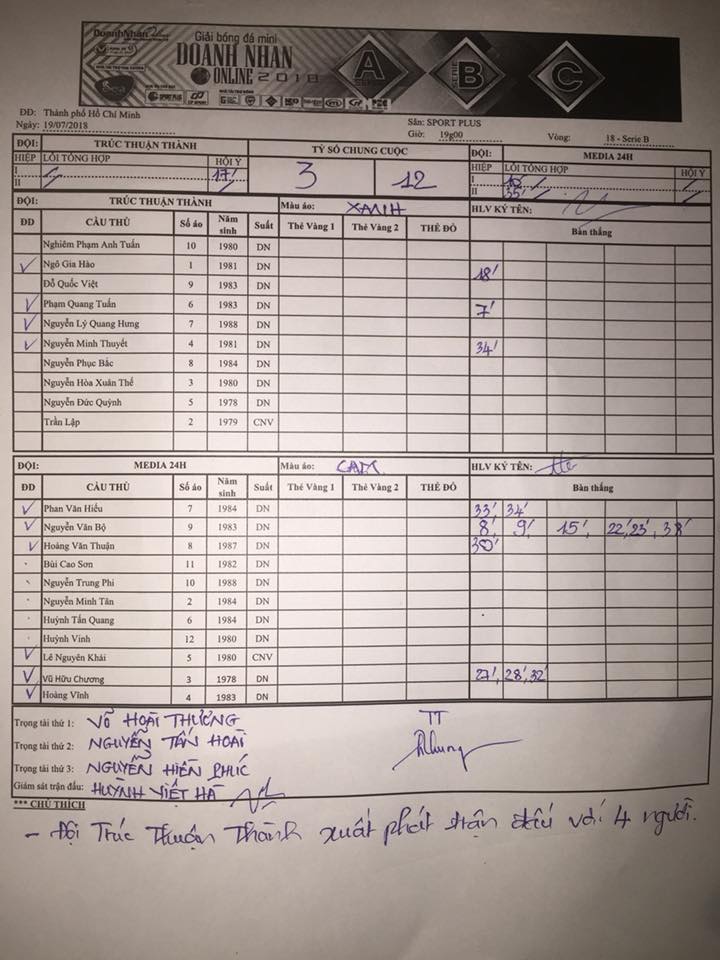 DoanhNhan
Giải bóng đá mini
DOANH NHAN
ONLINE 2018
A
SERIE
B
C
ĐĐ: Thành phố Hồ Chí Minh
Sân: SPORT PLUS
Ngày: 19/07/2018
Giờ: 19g00
Vòng: 18 - Serie B
ĐỘI: TRÚC THUẬN THÀNH TỶ SỐ CHUNG CUỘC ĐỘI: MEDIA 24H
HIỆP LỖI TỔNG HỢP HỘI Ý 3 12 HIỆP LỖI TỔNG HỢP HỘI Ý
I 17' I
II II 35'
ĐỘI: TRÚC THUẬN THÀNH Màu áo: XANH HLV KÝ TÊN:
ĐD CẦU THỦ Số áo Năm sinh Suất Thẻ Vàng 1 Thẻ Vàng 2 THẺ ĐỎ Bàn thắng
Nghiêm Phạm Anh Tuấn 10 1980 DN
Ngô Gia Hào 1 1981 DN 18'
Đỗ Quốc Việt 9 1983 DN
Phạm Quang Tuấn 6 1983 DN 7'
Nguyễn Lý Quang Hưng 7 1988 DN
Nguyễn Minh Thuyết 4 1981 DN 34'
Nguyễn Phục Bắc 8 1984 DN
Nguyễn Hòa Xuân Thế 3 1980 DN
Nguyễn Đức Quỳnh 5 1978 DN
Trần Lập 2 1979 CNV
ĐỘI: MEDIA 24H Màu áo: CAM HLV KÝ TÊN:
ĐD CẦU THỦ Số áo Năm sinh Suất Thẻ Vàng 1 Thẻ Vàng 2 THẺ ĐỎ Bàn thắng
Phan Văn Hiếu 7 1984 DN 33', 34'
Nguyễn Văn Bộ 9 1983 DN 8', 9', 15', 22', 23', 38'
Hoàng Văn Thuận 8 1987 DN 30'
Bùi Cao Sơn 11 1982 DN
Nguyễn Trung Phi 10 1988 DN
Nguyễn Minh Tân 2 1984 DN
Huỳnh Tấn Quang 6 1984 DN
Huỳnh Vinh 12 1980 DN
Lê Nguyên Khải 5 1980 CNV
Vũ Hữu Chương 3 1978 DN 27', 28', 32'
Hoàng Vĩnh 4 1983 DN
Trọng tài thứ 1: VÕ HOÀI THƯƠNG TT
Trọng tài thứ 2: NGUYỄN TẤN HOÀI
Trọng tài thứ 3: NGUYỄN HIỀN PHÚC
Giám sát trận đấu: HUỲNH VIỆT HÀ
*** CHÚ THÍCH
- Đội Trúc Thuận Thành xuất phát trận đấu với 4 người.